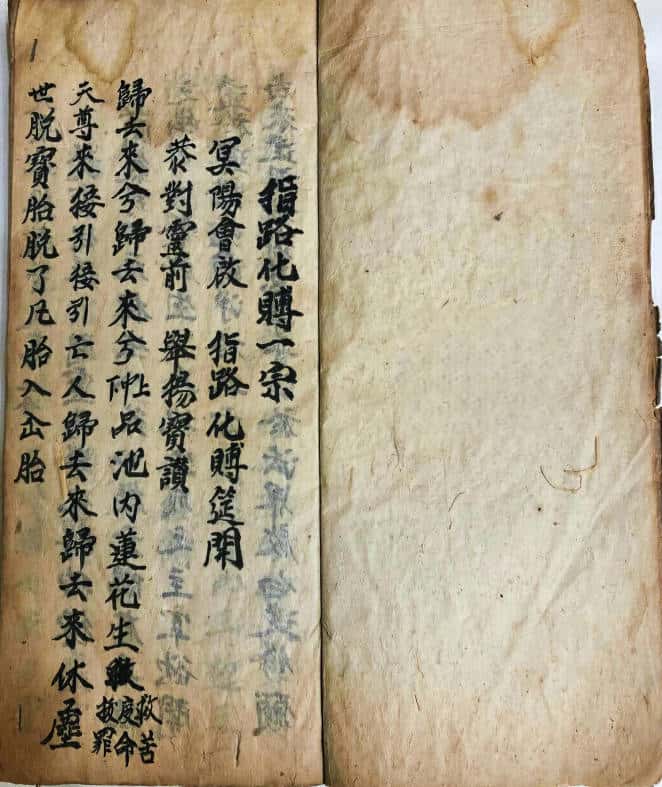 指路化賻一宗
冥陽會啟 指路化賻筵開
恭對靈前 舉揚寶讚
歸去來兮歸去來兮上中下品池內蓮花生救苦度命拔罪
天尊來接引接引亡人歸去來歸去來休塵
世脫寶胎脫了凡胎入仚胎